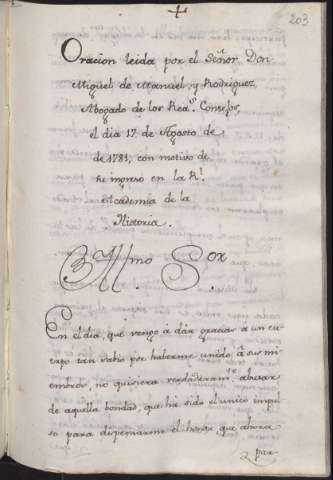 203
Oracion leida por el Señor Don
Miguel de Manuel, y Rodriguez,
Abogado de los Rea.s Consejos,
el dia 17 de Agosto de
de 1781, con motivo de
su ingreso en la R.l
Academia de la
Historia.
Yllmo Sor.
En el dia, que vengo à dár gracias à un cu-
erpo tan sabio por haberme unido à sus mi-
embros, no quisiera verdaderam.te abusar
de aquella bondad, que há sido el unico impul-
so para dispensarme el honor que ahora
par